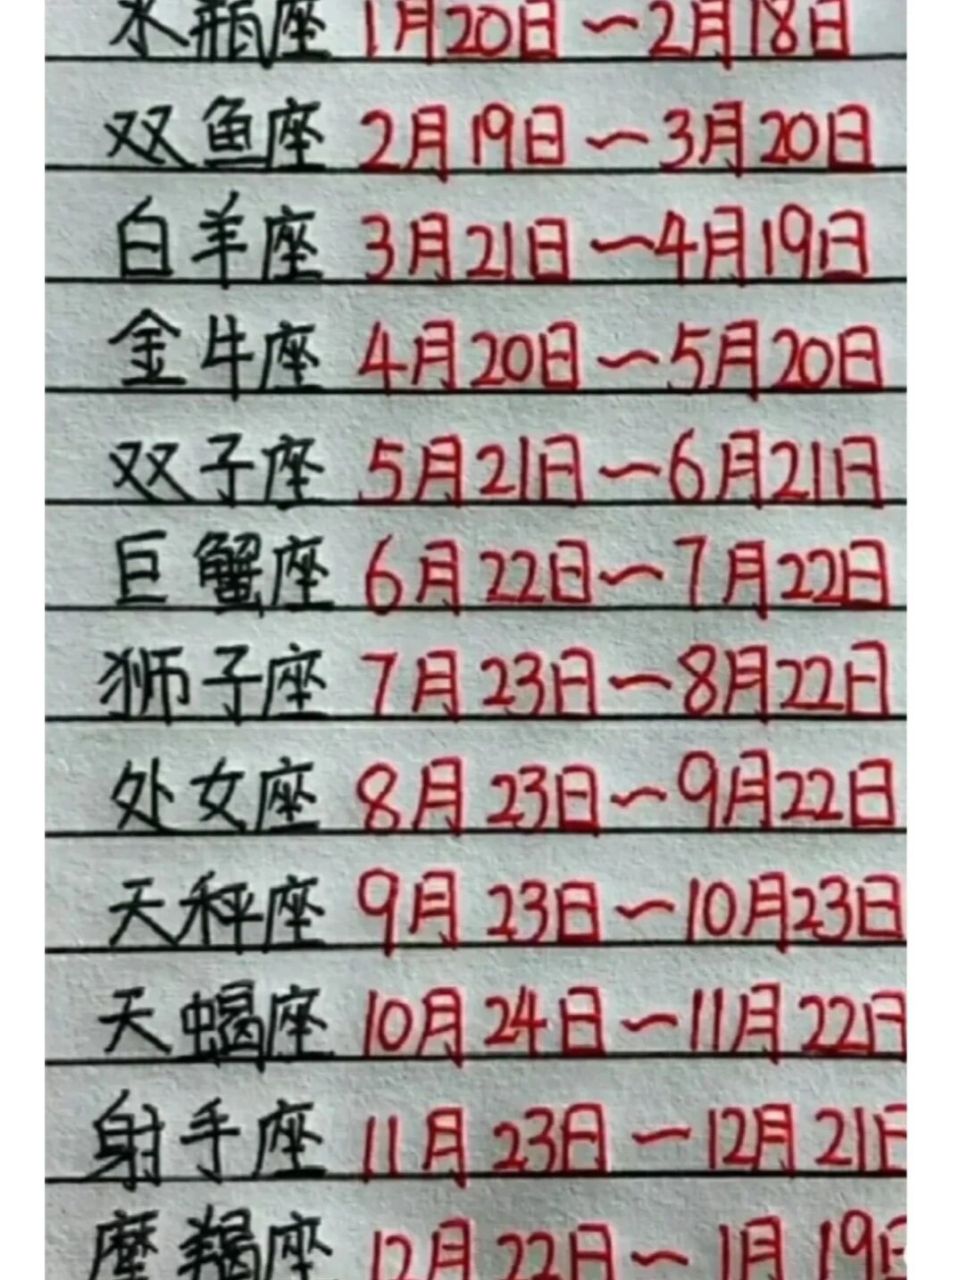 水瓶座 1月20日~2月18日
双鱼座 2月19日~3月20日
白羊座 3月21日~4月19日
金牛座 4月20日~5月20日
双子座 5月21日~6月21日
巨蟹座 6月22日~7月22日
狮子座 7月23日~8月22日
处女座 8月23日~9月22日
天秤座 9月23日~10月23日
天蝎座 10月24日~11月22日
射手座 11月23日~12月21日
摩羯座 12月22日~1月19日